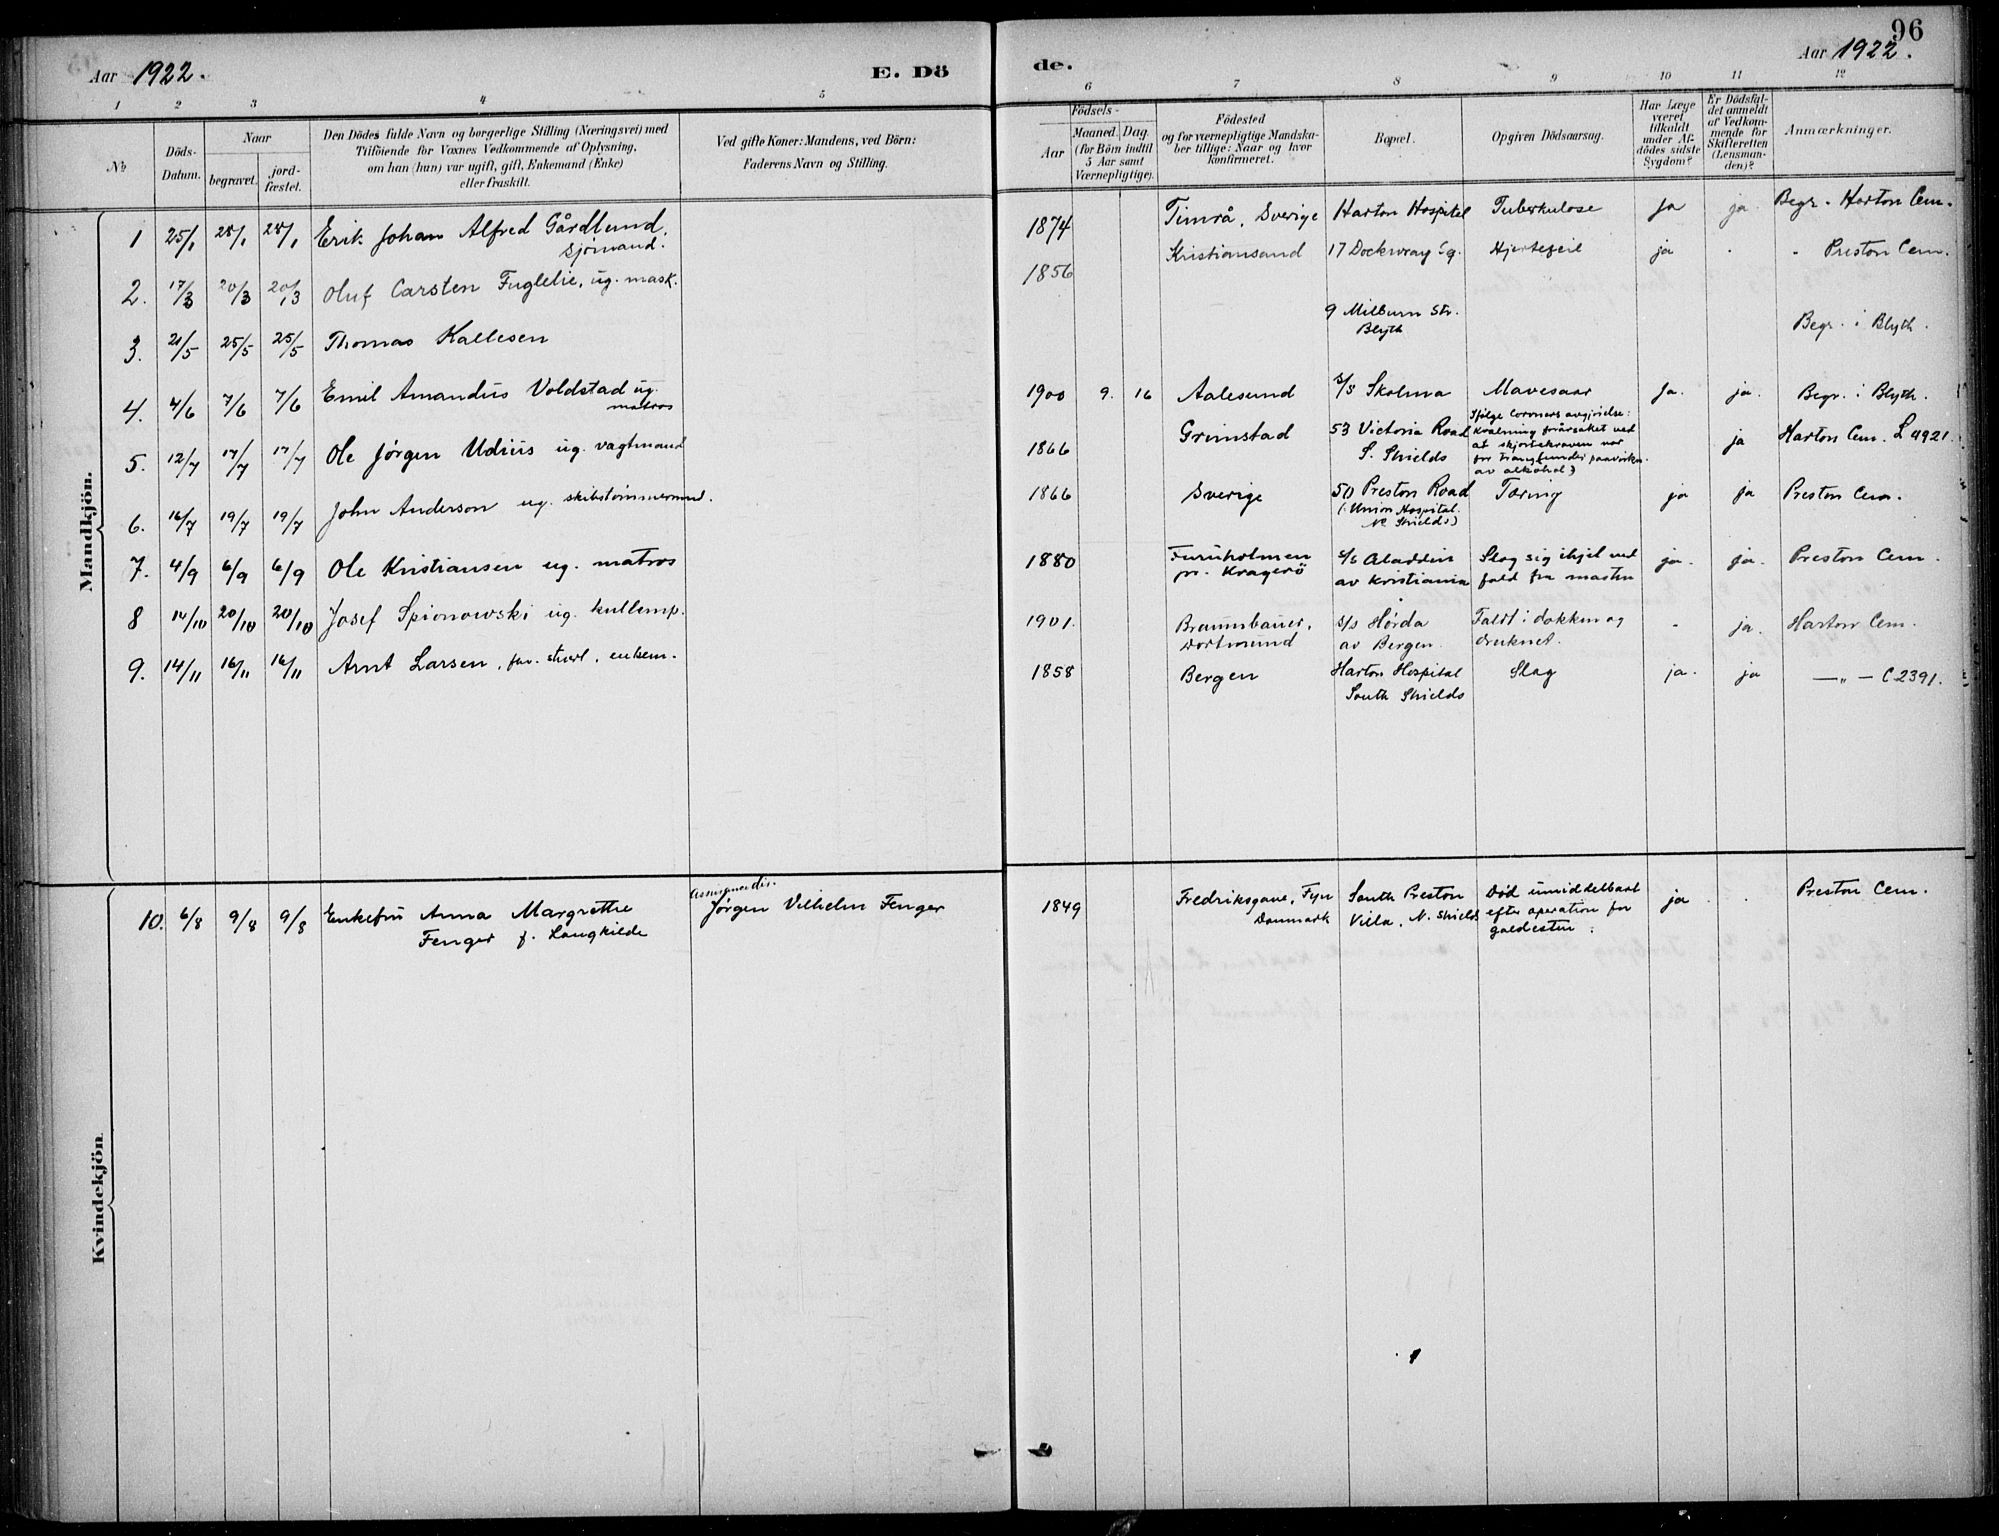 96
Aar 1922.
E. Dö
de.
Aar 1922.
1 2 3 4 5 6 7 8 9 10 11 12
No
Döds-
Datum.
Naar
begravet.
jord-
fæstet.
Den Dödes fulde Navn og borgerlige Stilling (Næringsvei) med
Tilföiende for Voxnes Vedkommende af Oplysning,
om han (hun) var ugift, gift, Enkemand (Enke)
eller fraskilt.
Ved gifte Koner: Mandens, ved Börn:
Faderens Navn og Stilling.
Födsels-
Aar
Maaned. Dag.
(for Börn indtil
5 Aar samt
Værnepligtige).
Födested
og for værnepligtige Mandska-
ber tillige: Naar og hvor
konfirmeret.
Bopæl.
Opgiven Dödsaarsag.
Har Læge
været
tilkaldt
under Af-
dödes sidste
Sygdom?
Er Dödsfal-
det anmeldt
af Vedkom-
mende for
Skifteretten
(Lensman-
den)?
Anmærkninger.
Mandkjön.
1 25/1 28/1 28/1 Erik Johan Alfred Gårdlund, 1874 Timrå, Sverige Harton Hospital Tuberkulose Ja ja Begr. Harton Cem.
sjömand.
2. 17/3 20/3 20/3 Oluf Carsten Fuglelie, ug. mask. 1856 Kristiansand 17 Dockwray Sq. Hjertefeil ja . " Preston Cem.
3. 21/5 25/5 25/5 Thomas Kallesen 9 Milburn Str. Begr. i Blyth.
Blyth
4. 4/6 7/6 7/6 Emil Amandus Voldstad ug. 1900 9. 16 Aalesund s/s Skolma Mavesaar Ja. ja. Begr. i Blyth.
matros
5. 12/7 17/7 17/7 Ole Jørgen Udiüs ug. vagtmand 1866 Grimstad 53 Victoria Road ja Harton Cem. L 4921.
S. Shields
Ifølge Coroners avgjörelse:
Kvælning forårsaket ved
at skjortekraven var
for trang (under paavirkn.
av alkohol)
6. 16/7 19/7 19/7 John Anderson ug. skibstömmermand. 1866 Sverige 50 Preston Road Tæring ja ja Preston Cem.
(Union Hospital.
No Shields)
7. 4/9 6/9 6/9 Ole Kristiansen ug. matros 1880 Furuholmen s/s Aladdin Slog sig ihjel ved ja. ja. Preston Cem.
pr. Kragerö av Kristiania fald fra masten
8 14/10 20/10 20/10 Josef Spionowski ug. kullemp. 1901. Braumbauer, s/s Hørda Faldt i dokken og - ja. Harton Cem.
Dortmund av Bergen. druknet.
9. 14/11 16/11 16/11 Arnt Larsen, fhv. stuert, enkem. 1858 Bergen Harton Hospital Slag ja. ja —"— C 2391.
South Shields
Kvindekjön
10. 6/8 9/8 9/8 Enkefru Anna Margrethe Jörgen Vilhelm Fenger 1849 Fredriksgave, Fyn South Preston Död umiddelbart ja . . Preston Cem.
Fenger f. Langkilde Danmark Villa, N. Shields efter operation for
galdesten.